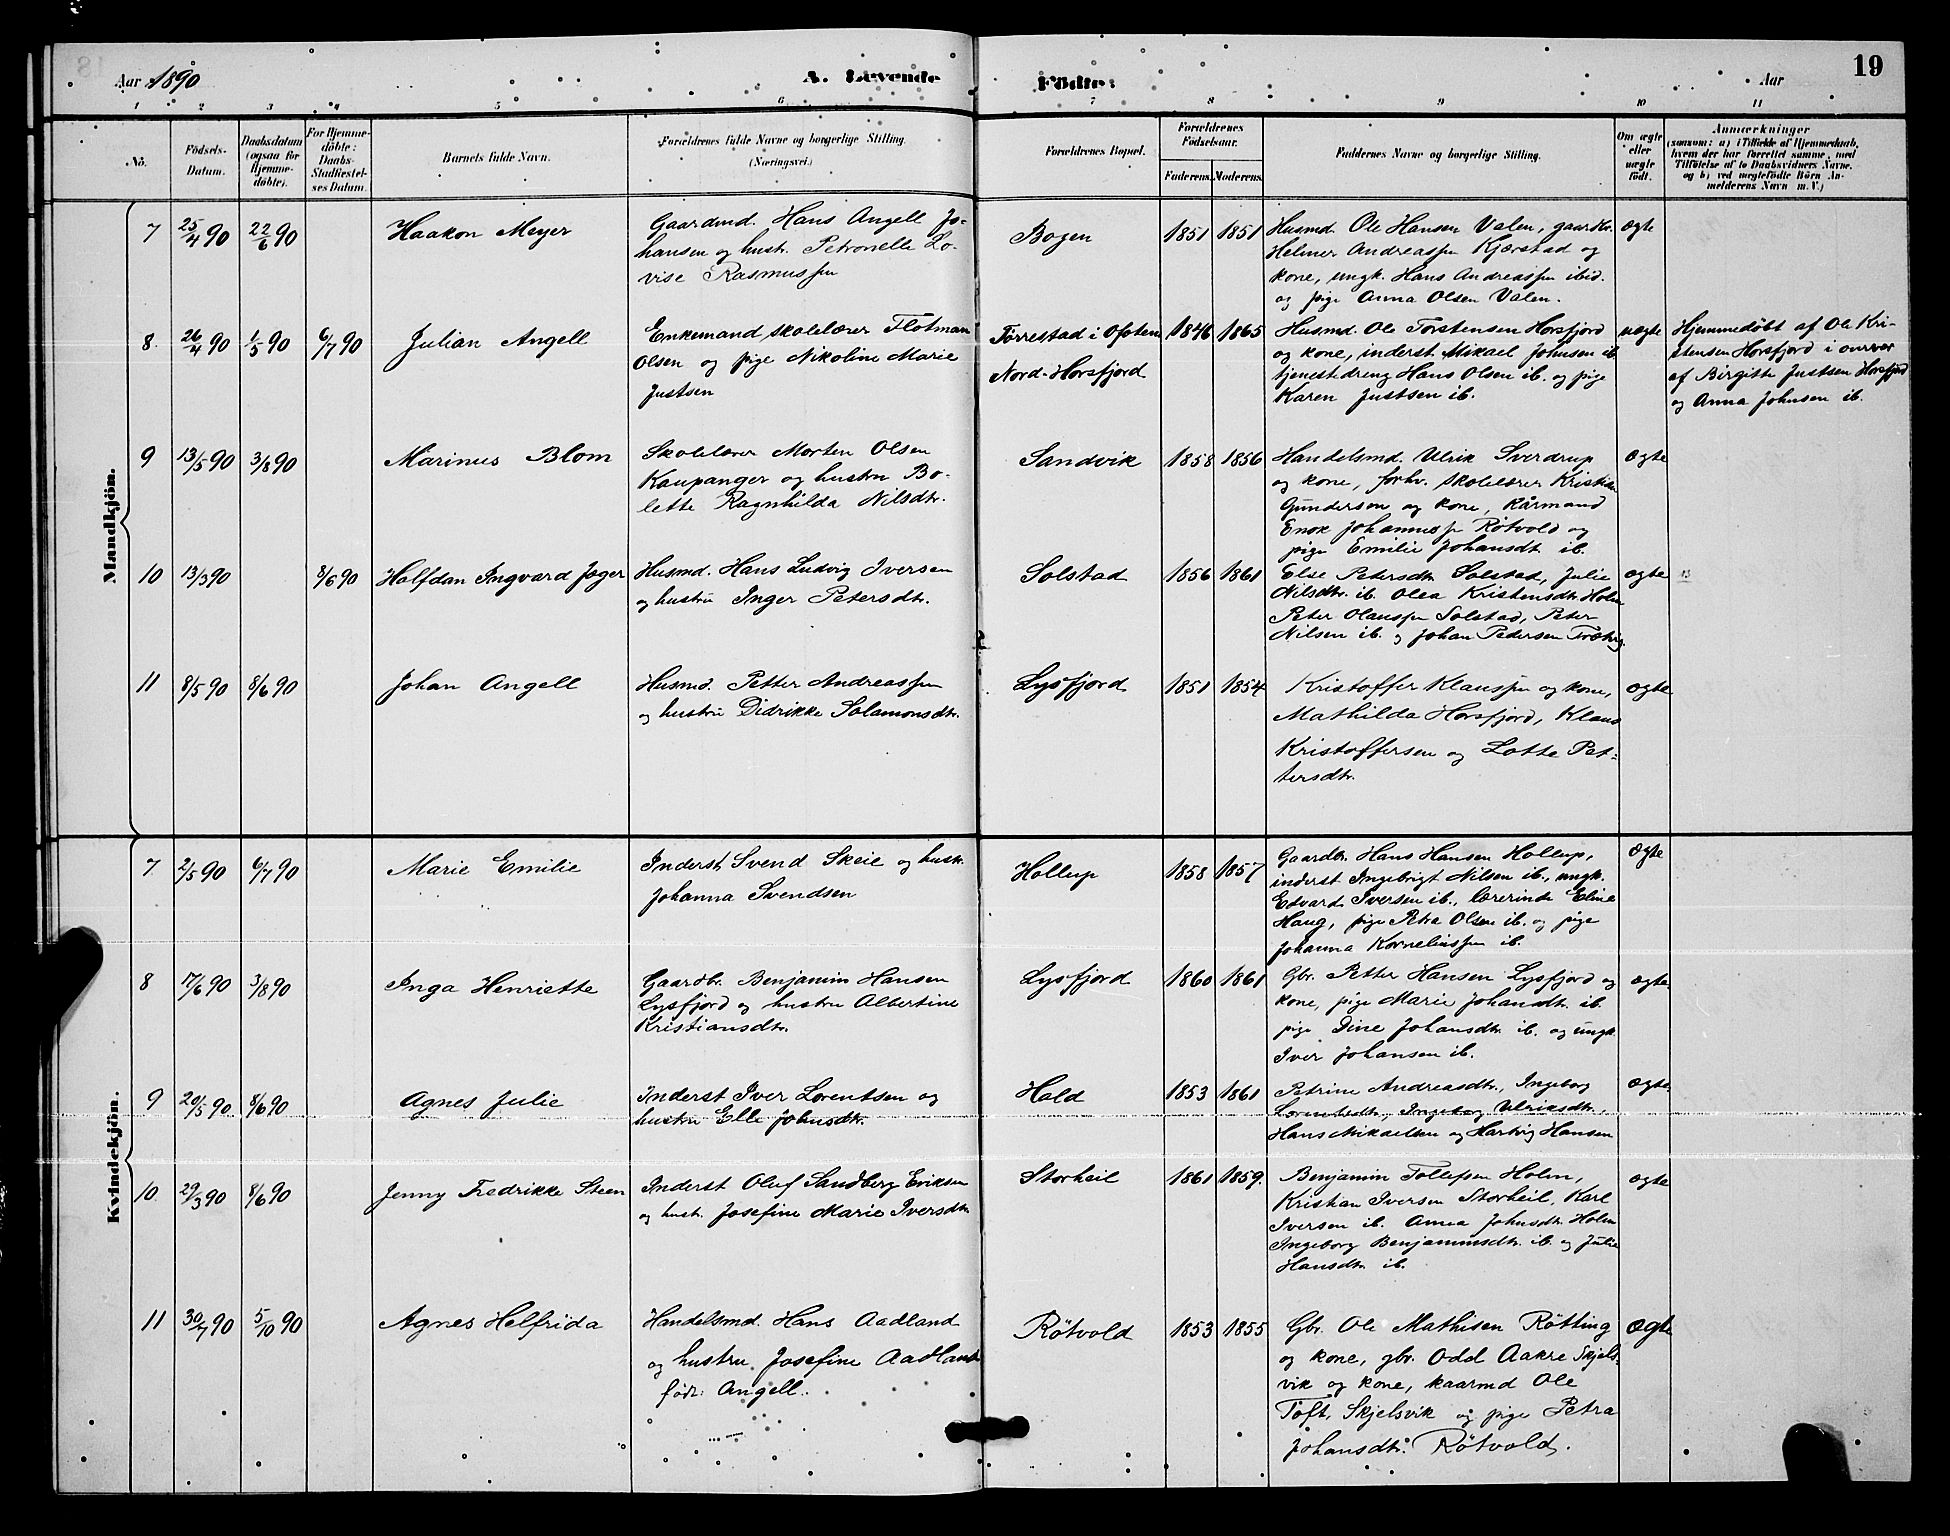 Aar 1890
A. Levende Födte:
Aar
19
1 2 3 4 5 6 7 8 9 10 11
No.
Födsels-
Datum.
Daabsdatum
(ogsaa for
Hjemme-
döbte).
For Hjemme-
döbte:
Daabs-
Stadfæstel-
ses Datum.
Barnets fulde Navn.
Forældrenes fulde Navne og borgerlige Stilling.
(Næringsvei.)
Forældrenes Bopæl.
Forældrenes
Födselsaar.
Faderens. Moderens.
Faddernes Navne og borgerlige Stilling.
Om ægte
eller
uægte
födt.
Anmærkninger
(saasom: a) i Tilfælde af Hjemmedaab,
hvem der har forrettet samme, med
Tilföielse af to Daabsvidners Navne,
og b) ved uægtefödte Börn An-
melderens Navn m. V.)
Mandkjön.
7 25/4 90 22/6 90
Haakon Meyer
Gaardmd. Hans Angell Jo-
hansen og hustr. Petronelle Lo-
vise Rasmussen
Bogen
1851 1851
Husmd. Ole Hansen Valen, gaardbr.
Helmer Andreassen Kjærstad og
kone, ungk. Hans Andreassen ibid.
og pige Anna Olsen Valen.
ægte
8. 26/4 90 1/5 90 6/7 90
Julian Angell
Enkemand, skolelærer Flotman
Olsen og pige Nikoline Marie
Justsen
Torrestad i Ofoten
Nord-Horsfjord
1846 1865
Husmd. Ole Torstensen Horsfjord
og kone, inderst Mikael Johnsen ib.
tjenestedreng Hans Olsen ib. og pige
Karen Justsen ib.
uægte
Hjemmedöbt af Ole Kri-
stensen Horsfjord i overvær
af Birgitte Justsen Horsfjord
og Anna Johnsen ib.
9 13/5 90 3/8 90
Marinus Blom
Skolelærer Morten Olsen
Kaupanger og hustru Bo-
lette Ragnhilda Nilsdtr.
Sandvik
1858 1856
Handelsmd. Ulrik Sverdrup
og kone, forhv. skolelærer Kristian
Gundersen og kone, kårmand
Enok Johannesen Rötvold og
pige Emilie Johansdtr. ib.
ægte
10 13/3 90 8/6 90
Halfdan Ingvard Jæger
Husmd. Hans Ludvig Iversen
og hustru Inger Petersdtr.
Solstad
1856 1861
Else Petersdtr. Solstad, Julie
Nilsdtr. ib. Olea Kristensdtr. Holm
Peter Olaussen Solstad, Peter
Nilsen ib. og Johan Pedersen
ægte
11 8/5 90 8/6 90
Johan Angell
Husmd. Petter Andreassen
og hustru Didrikke Solamonsdtr.
Lysfjord
1851 1854
Kristoffer Klaussen og kone,
Mathilda Horsfjord, Klaus
Kristoffersen og Lotte Pet-
tersdtr.
ægte
Kvindekjön.
7 2/5 90 6/7 90
Marie Emilie
Inderst, Svend Skeie og hustr.
Johanna Svendsen
Hollup
1858 1857
Gaardbr. Hans Hansen Hollup,
inderst Ingebrigt Nilsen ib., ungk.
Edvard Iversen ib., lærerinde Eline
Haug, pige Petra Olsen ib. og pige
Johanna Korneliussen ib.
ægte
8 17/6 90 3/8 90
Inga Henriette
Gaardbr. Benjamin Hansen
Lysfjord og hustru Albertine
Kristiansdtr.
Lysfjord
1860 1861
Gbr. Petter Hansen Lysfjord og
kone, pige Marie Johansdtr. ib.
pige Dine Johansdtr. ib. og ungk.
Iver Johansen ib.
ægte
9 20/5 90 8/6 90
Agnes Julie
Inderst Iver Lorentsen og
hustru Elle Johnsdtr.
Hald
1853 1861
Petrine Andreasdtr., Ingeborg
Lorentsdtr., Ingeborg Ulriksdtr.,
Hans Mikaelsen og Hartvig Hansen
ægte
10. 29/3 90 8/6 90
Jenny Fredrikke Steen
Inderst Oluf Sandberg Eriksen
og hustr. Josefine Marie Iversdtr.
Storheil
1861 1859.
Benjamin Tollefsen Holm,
Kristian Iversen Storheil, Karl
Iversen ib. Anna Johnsdtr. Holm
Ingeborg Benjaminsdtr. ib. og Julie
Hansdtr. ib.
ægte
11 30/7 90 5/10 90
Agnes Helfrida
Handelsmd. Hans Aadland
og hustru, Josefine Aadland
födt: Angell.
Rötvold
1853 1855
Gbr. Ole Mathisen Rötting
og kone, gbr. Odd Aakre Skjels-
vik og kone, kaarmd Ole
Toft, Skjelsvik og pige Petra
Johansdtr: Rötvold.
ægte